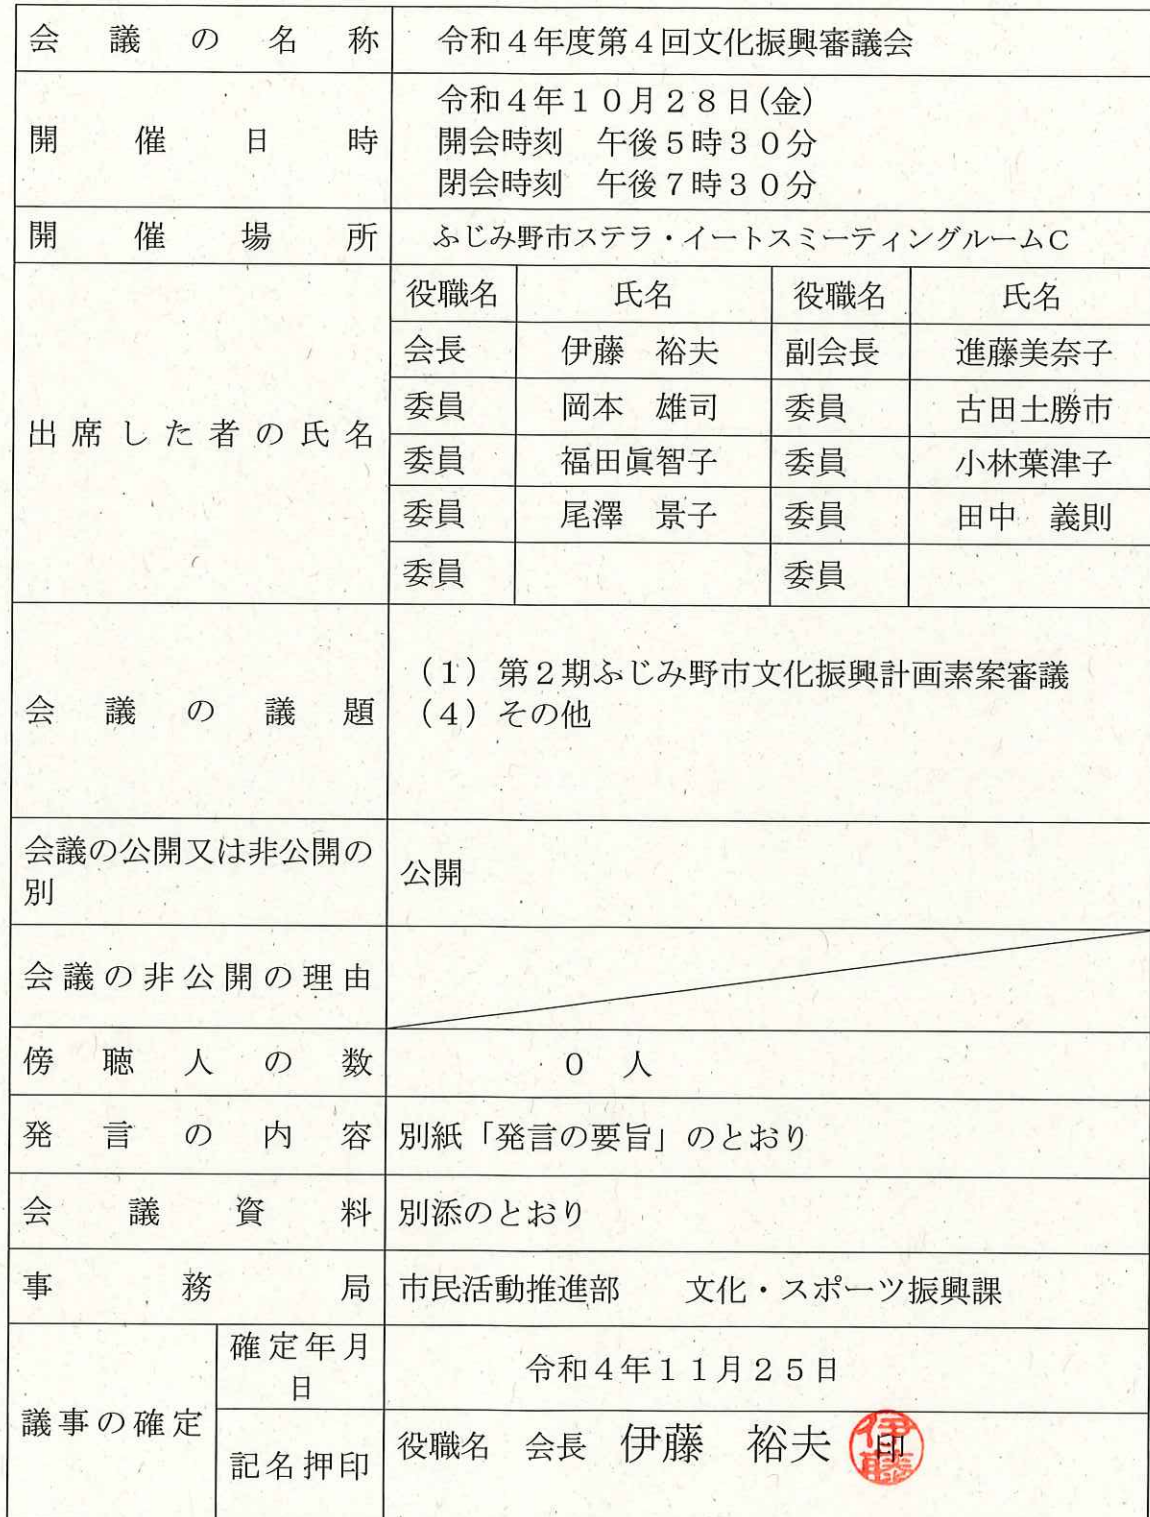 会議の名称 令和４年度第４回文化振興審議会
開催日時 令和４年１０月２８日(金)
開会時刻　午後５時３０分
閉会時刻　午後７時３０分
開催場所 ふじみ野市ステラ・イートスミーティングルームＣ
出席した者の氏名
役職名 氏名 役職名 氏名
会長 伊藤　裕夫 副会長 進藤美奈子
委員 岡本　雄司 委員 古田土勝市
委員 福田眞智子 委員 小林葉津子
委員 尾澤　景子 委員 田中　義則
委員 委員
会議の議題
（１）第２期ふじみ野市文化振興計画素案審議
（４）その他
会議の公開又は非公開の
別
公開
会議の非公開の理由
傍聴人の数 ０　人
発言の内容 別紙「発言の要旨」のとおり
会議資料 別添のとおり
事務局 市民活動推進部　　文化・スポーツ振興課
議事の確定
確定年月
日
令和４年１１月２５日
記名押印 役職名　会長　伊藤　裕夫 印
伊藤